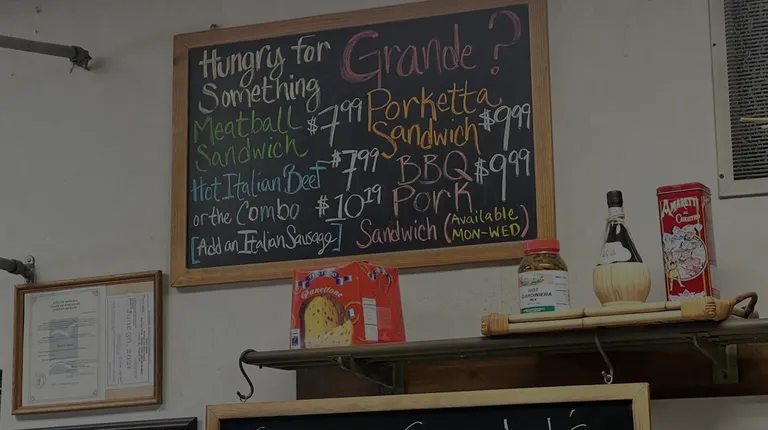 Hungry for
Something
Grande?
Meatball
Sandwich
$7.99
Hot Italian Beef
$7.99
or the Combo
$10.19
[Add an Italian Sausage]
Porketta
Sandwich
$9.99
BBQ
Pork
$9.99
Sandwich (Available
MON-WED)
Panettone
HOT
GIARDINIERA
AMARETTI